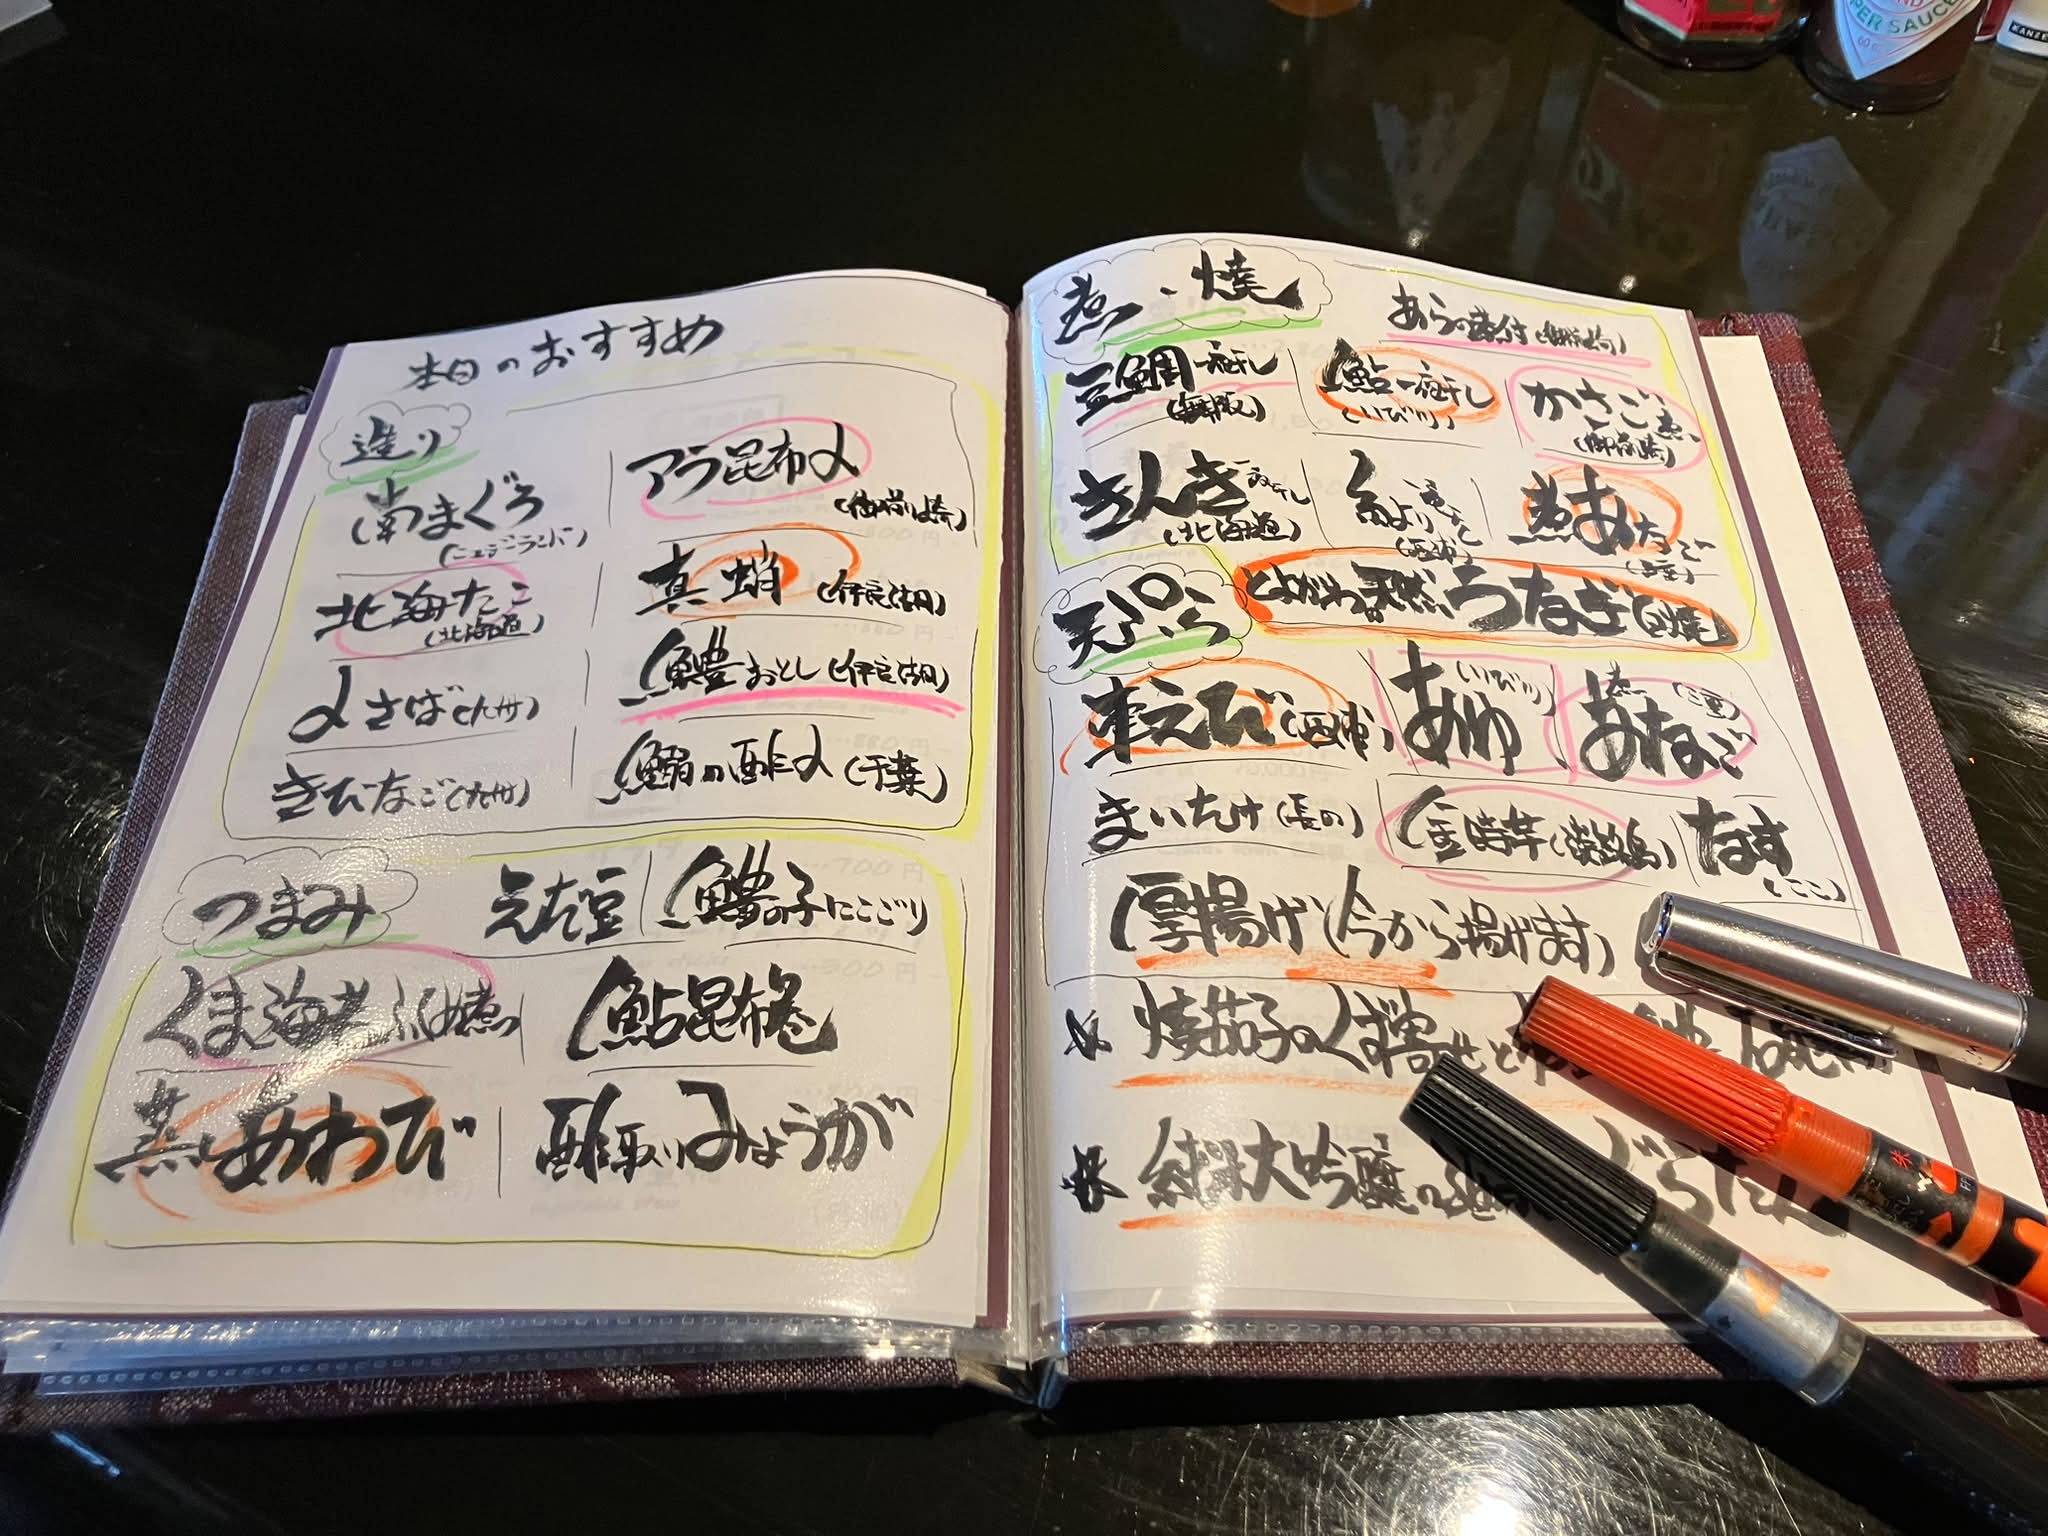 本日のおすすめ
造り
南まぐろ
(ニュージーランド)
北海たこ
(北海道)
〆さば(九州)
きびなご(九州)
アラ昆布〆
(御前崎)
真蛸(伊良湖)
鱧おとし(伊良湖)
鰯の酢〆(千葉)
つまみ
えだ豆
鱧の子にこごり
くま海老ふくめ煮
鮎昆布巻
蒸しあわび
酢取りみょうが
煮、焼
あらの煮付(御前崎)
豆鯛一夜干し
(舞阪)
鮎一夜干し
(いび川)
かさご煮
(御前崎)
きんき一夜干し
(北海道)
糸より一夜干し
煮あなご
とよがわ天然うなぎ白焼
天ぷら
車えび
あゆ
(いび川)
あなご
まいたけ(長の)
金時芋(淡路島)
なす
(ここ)
厚揚げ(今から揚げます)
焼茄子のくず寄せ
純米大吟醸の
PER SAUCE